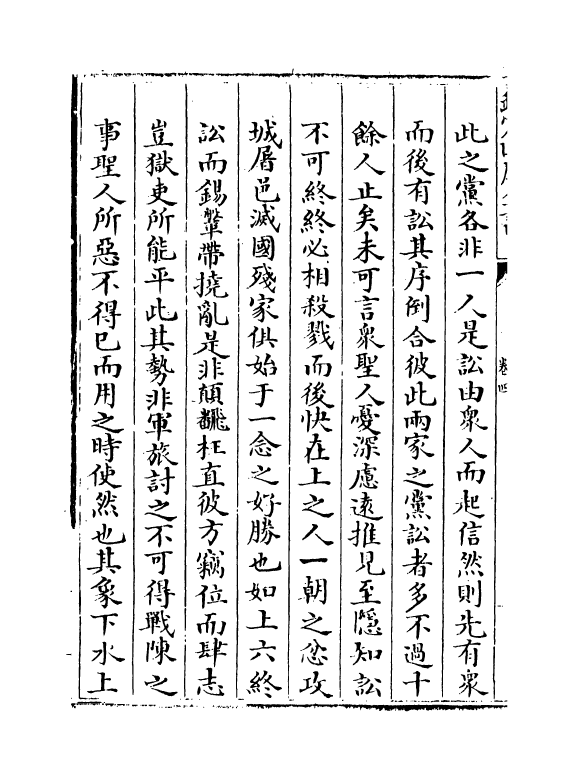 此之黨各非一人是訟由衆人而起信然則先有衆
而後有訟其序倒合彼此兩家之黨訟者多不過十
餘人止矣未可言衆聖人憂深慮遠推見至隱知訟
不可終終必相殺戮而後快在上之人一朝之忿攻
城屠邑滅國殘家俱始于一念之好勝也如上六終
訟而錫鞶帶撓亂是非顛飜枉直彼方竊位而肆志
豈獄吏所能平此其勢非軍旅討之不可得戰陳之
事聖人所惡不得已而用之時使然也其象下水上
卷四